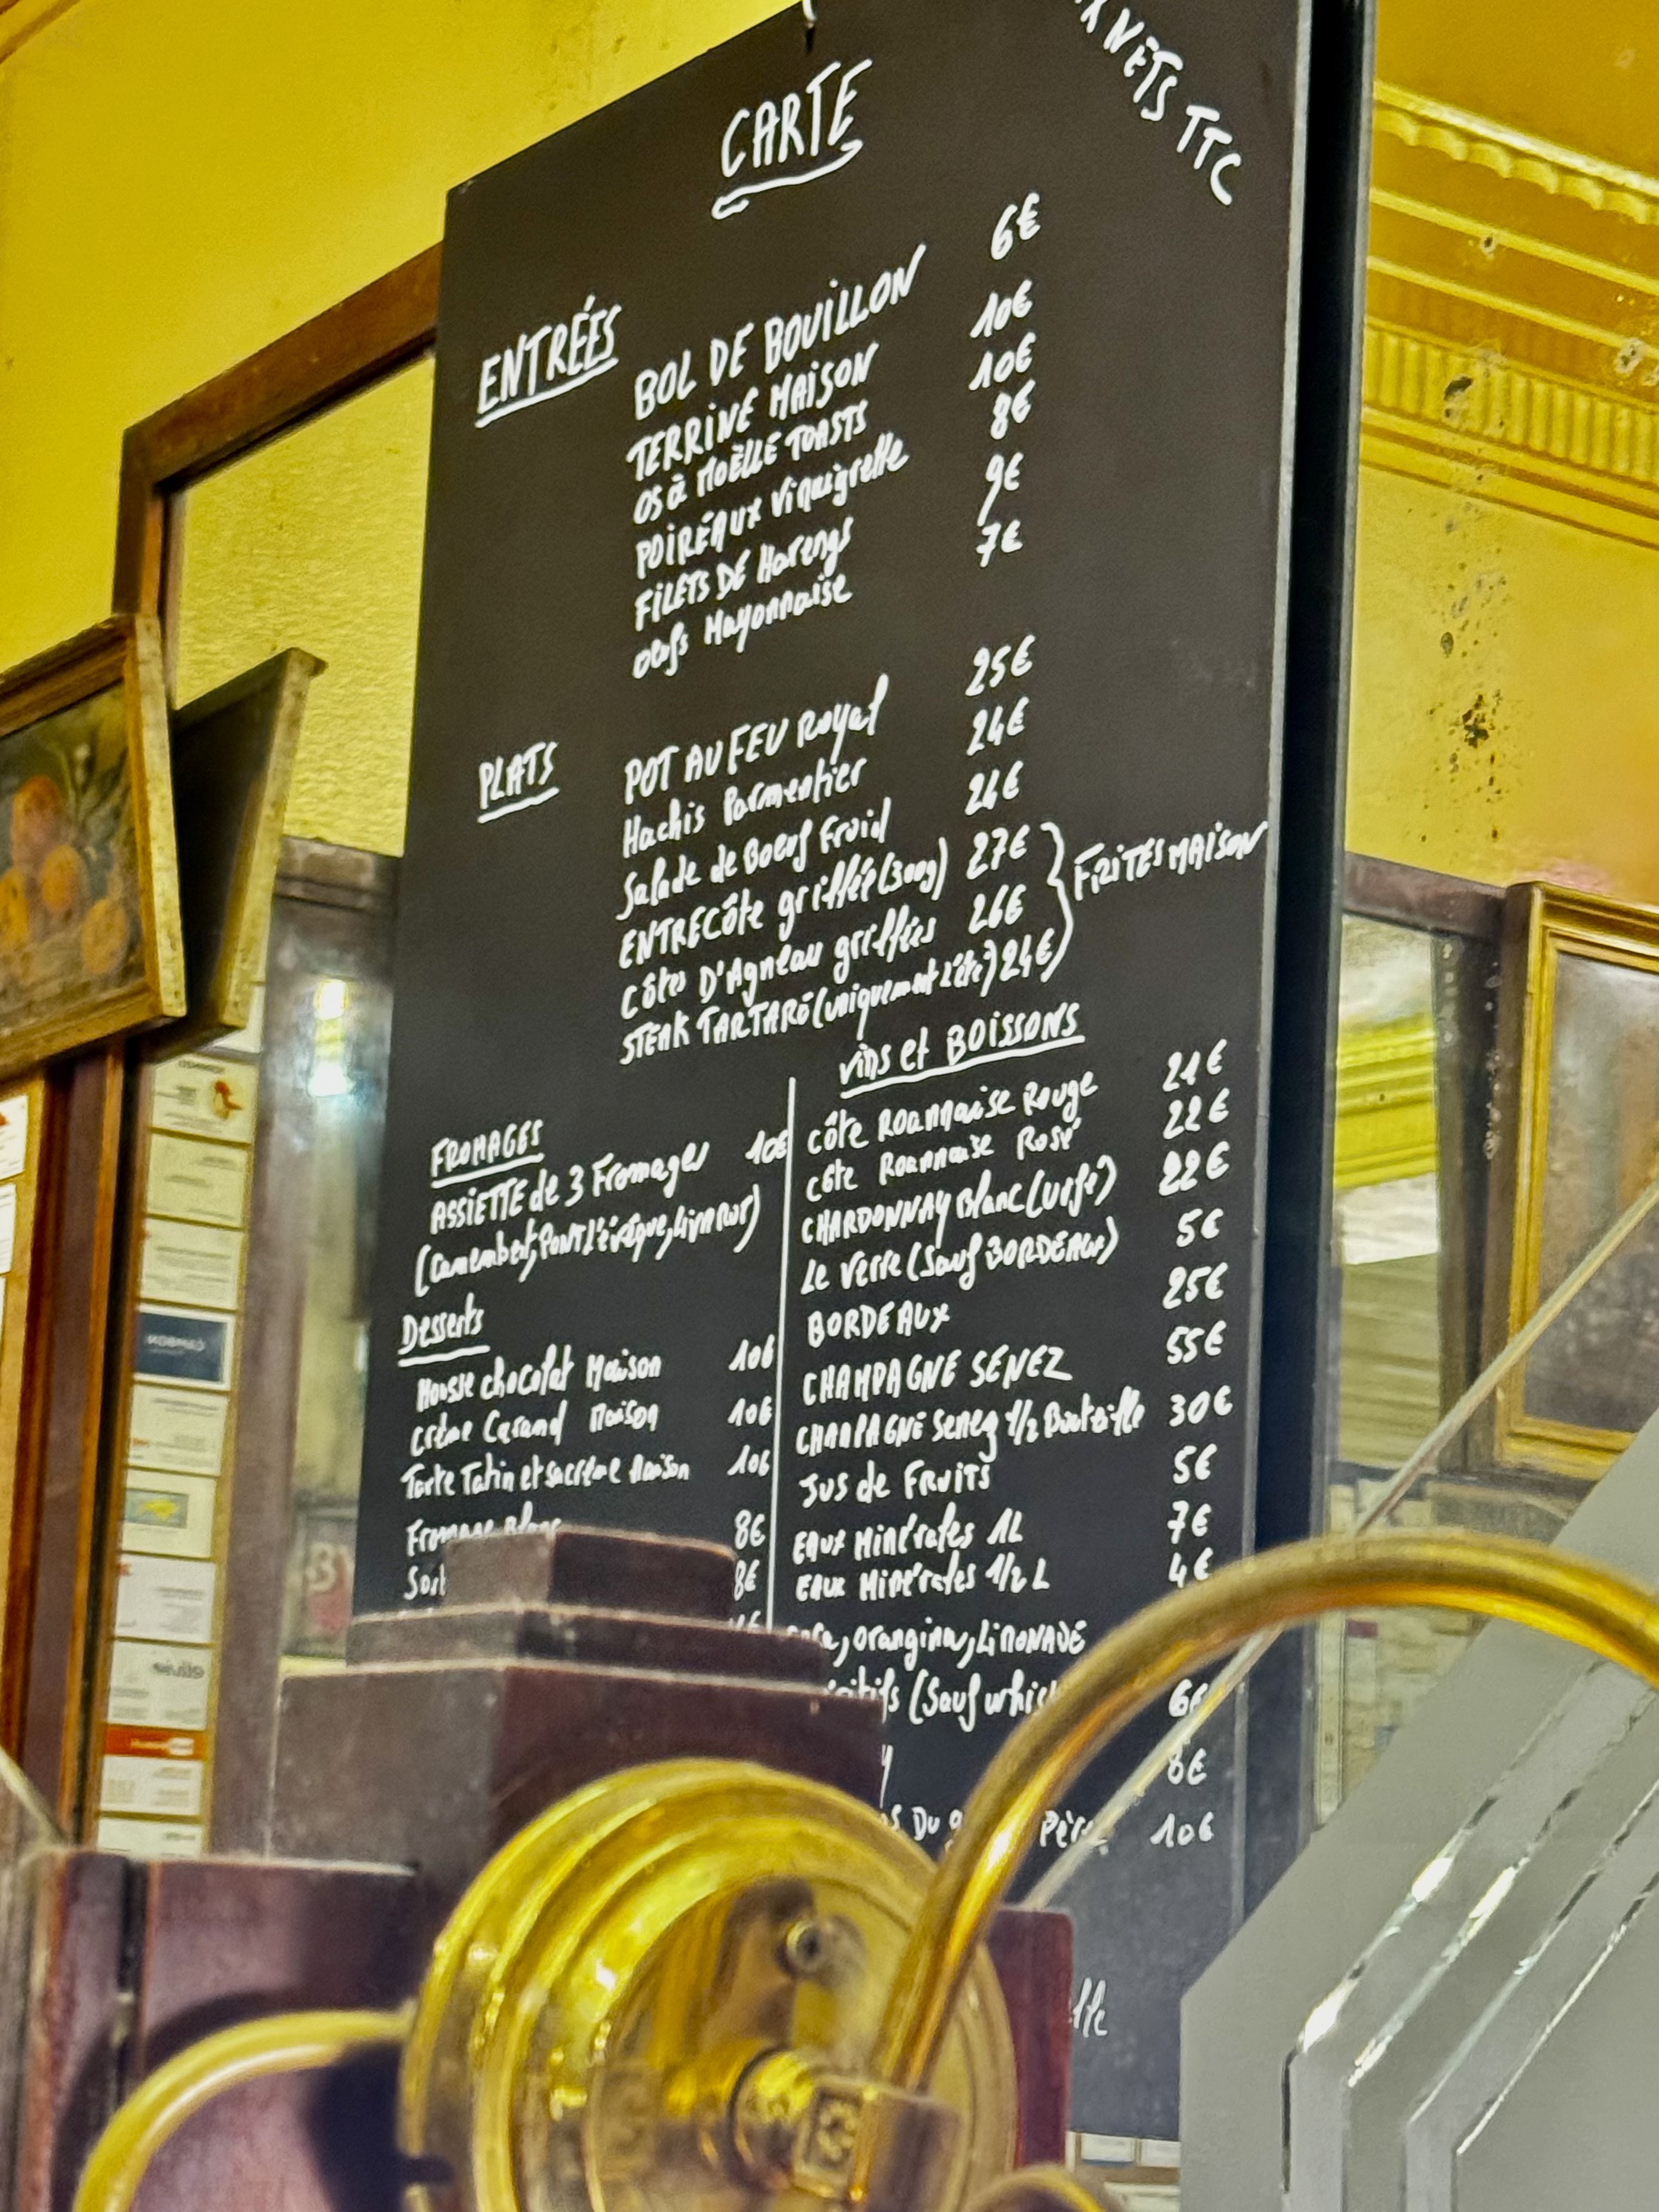 CARTE
NETS TTC
ENTRÉES
BOL DE BOUILLON 6€
TERRINE MAISON 10€
OS à MOËLLE TOASTS 10€
POIREAUX Vinaigrette 8€
FILETS DE Harengs 9€
Oeufs Mayonnaise 7€
PLATS
POT AU FEU Royal 25€
Hachis Parmentier 24€
Salade de Boeuf Froid 24€
ENTRECôte griffée (300g) 27€
Côtes D'Agneau griffées 26€
STEAK TARTARE (uniquement l'été) 24€
FRITES MAISON
FROMAGES
ASSIETTE de 3 Fromages 10€
(Camembert, PONT L'évêque, LIVAROT)
Desserts
Mousse chocolat Maison 10€
Crème Caramel Maison 10€
Tarte Tatin et sa crème Maison 10€
Fromage Blanc 8€
8€
Vins et BOISSONS
Côte Roannaise Rouge 21€
Côte Roannaise Rosé 22€
CHARDONNAY Blanc (Urfé) 22€
Le Verre (Sauf BORDEAUX) 5€
BORDEAUX 25€
CHAMPAGNE SENEZ 55€
CHAMPAGNE Senez 1/2 Bouteille 30€
JUS de FRUITS 5€
EAUX Minérales 1L 7€
EAUX Minérales 1/2 L 4€
Orangina, LIMONADE
(Sauf 6€
8€
Du 10€